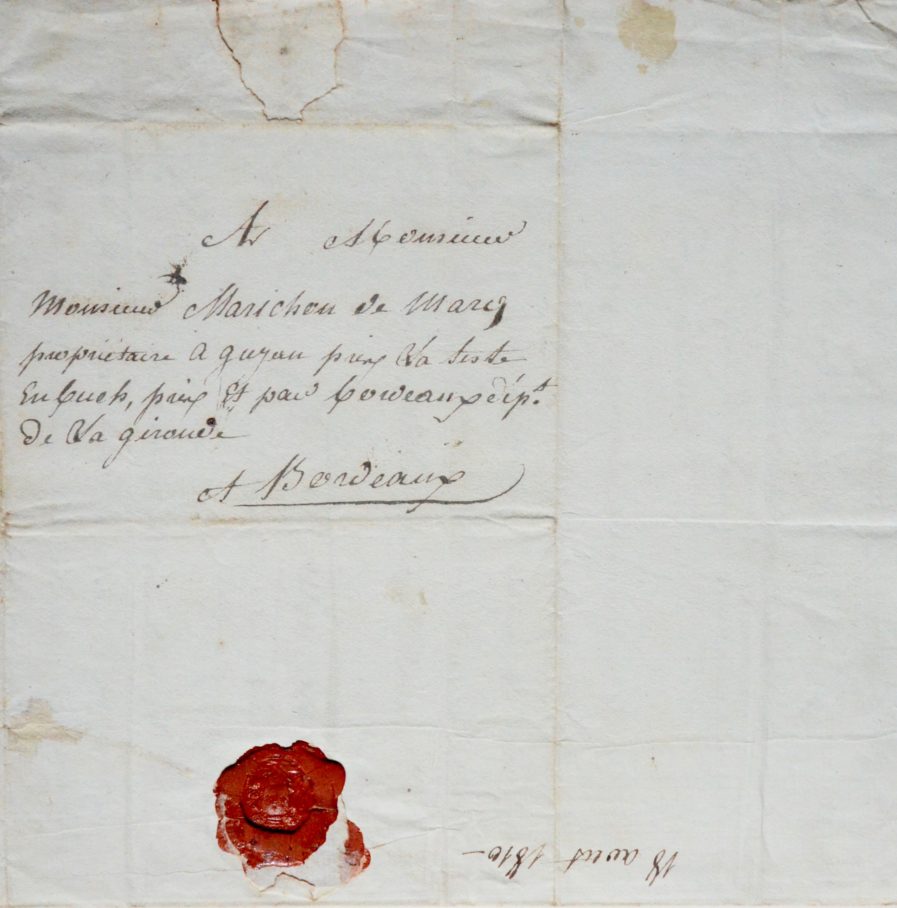 A Monsieur
Monsieur Marichon de Marcq
propriétaire a gujan près La teste
En buch, près Et par bordeaux dépt.
de La gironde
A Bordeaux
18 avril 1810